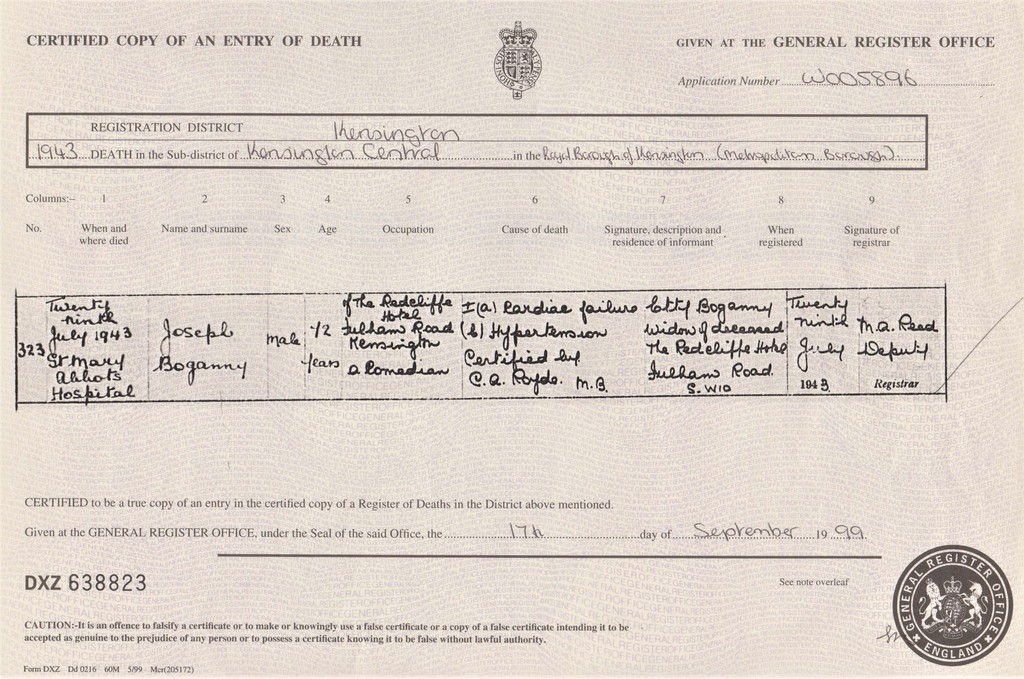 CERTIFIED COPY OF AN ENTRY OF DEATH
GIVEN AT THE GENERAL REGISTER OFFICE
Application Number W005896
REGISTRATION DISTRICT Kensington
1943 DEATH in the Sub-district of Kensington Central in the Royal Borough of Kensington (Metropolitan Borough)
Columns:- 1 2 3 4 5 6 7 8 9
No. When and where died Name and surname Sex Age Occupation Cause of death Signature, description and residence of informant When registered Signature of registrar
323
Twenty
ninth
July 1943
St Mary
Abbots
Hospital
Joseph
Boganny
male
72
years
of The Redcliffe
Hotel
Fulham Road
Kensington
a Comedian
I(a) Cardiac failure
(b) Hypertension
Certified by
C.A. Royde. M.B.
Boganny
widow of deceased
The Redcliffe Hotel
Fulham Road.
S.W10
Twenty
ninth
July
1943
M.A. Reed
Deputy
Registrar
CERTIFIED to be a true copy of an entry in the certified copy of a Register of Deaths in the District above mentioned.
Given at the GENERAL REGISTER OFFICE, under the Seal of the said Office, the 17th day of September 1999
DXZ 638823
See note overleaf
CAUTION:-It is an offence to falsify a certificate or to make or knowingly use a false certificate or a copy of a false certificate intending it to be
accepted as genuine to the prejudice of any person or to possess a certificate knowing it to be false without lawful authority.
GENERAL REGISTER OFFICE
ENGLAND
Form DXZ Dd 0216 60M 5/99 Mcr(205172)